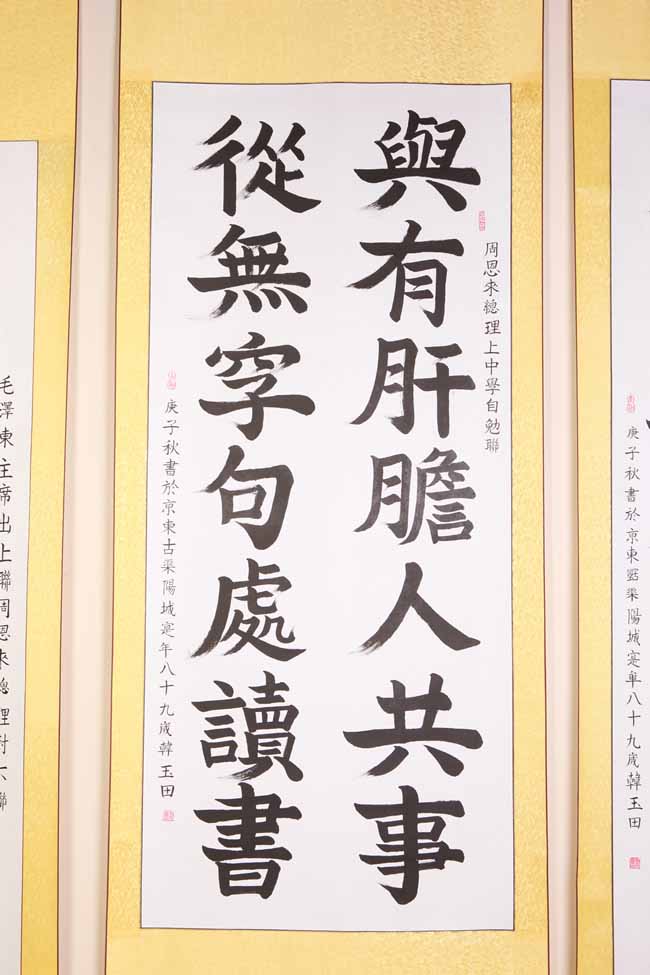 庚子秋書於京東渠陽城寔年八十九歲韓玉田
與有肝膽人共事
周恩來總理上中學自勉聯
從無字句處讀書
庚子秋書於京東古渠陽城寔年八十九歲韓玉田
毛澤東主席出上聯周恩來總理對下聯